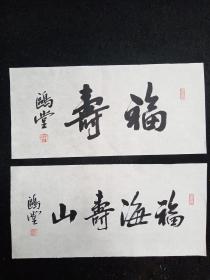 福壽
鷗堂
福海壽山
鷗堂